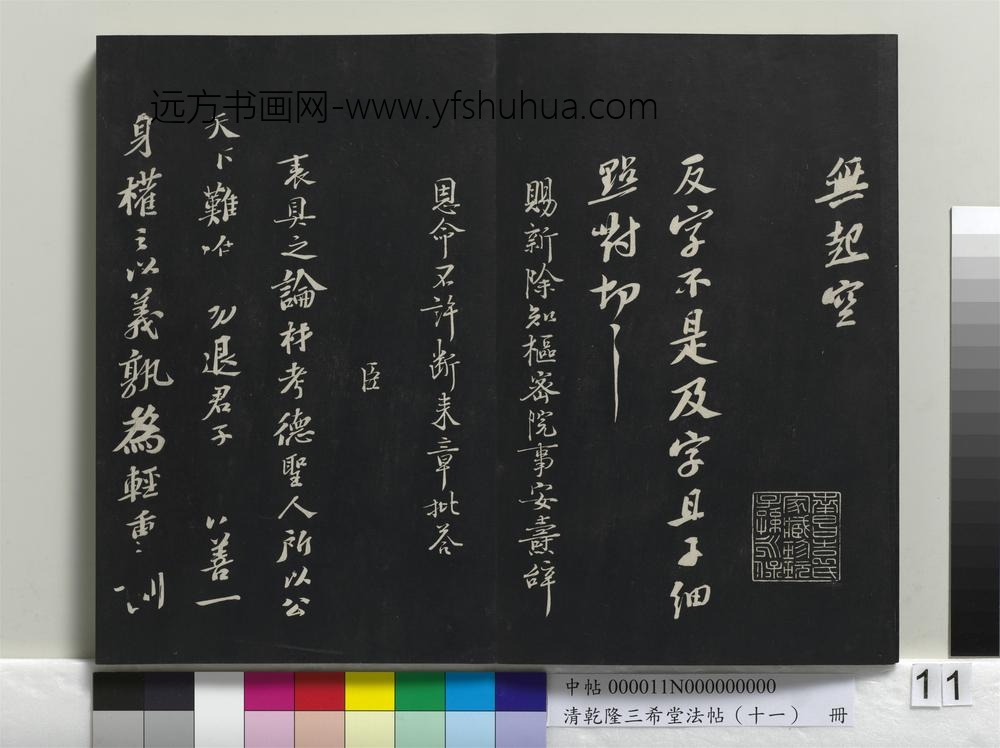 远方书画网-www.yfshuhua.com
無起空
反字不是及字且子細
點對切〻
賜新除知樞密院事安燾辭
恩命不許断来章批荅
臣
表具之論材考德聖人所以公
天下難 退君子 善一
身權之以義孰為輕重 訓
家藏珍玩
中帖 000011N000000000
清乾隆三希堂法帖（十一） 冊
11